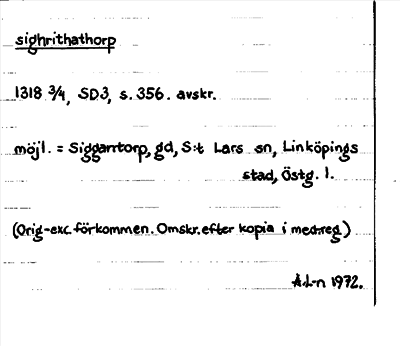 sighrithathorp
1318 3/4, SD3, s. 356. avskr.
möjl. = Siggantorp, gd, S:t Lars sn, Linköpings
stad, Östg. l.
(Orig-exc. förkommen. Omskr. efter kopia i med.reg)
Å.L-n 1972.